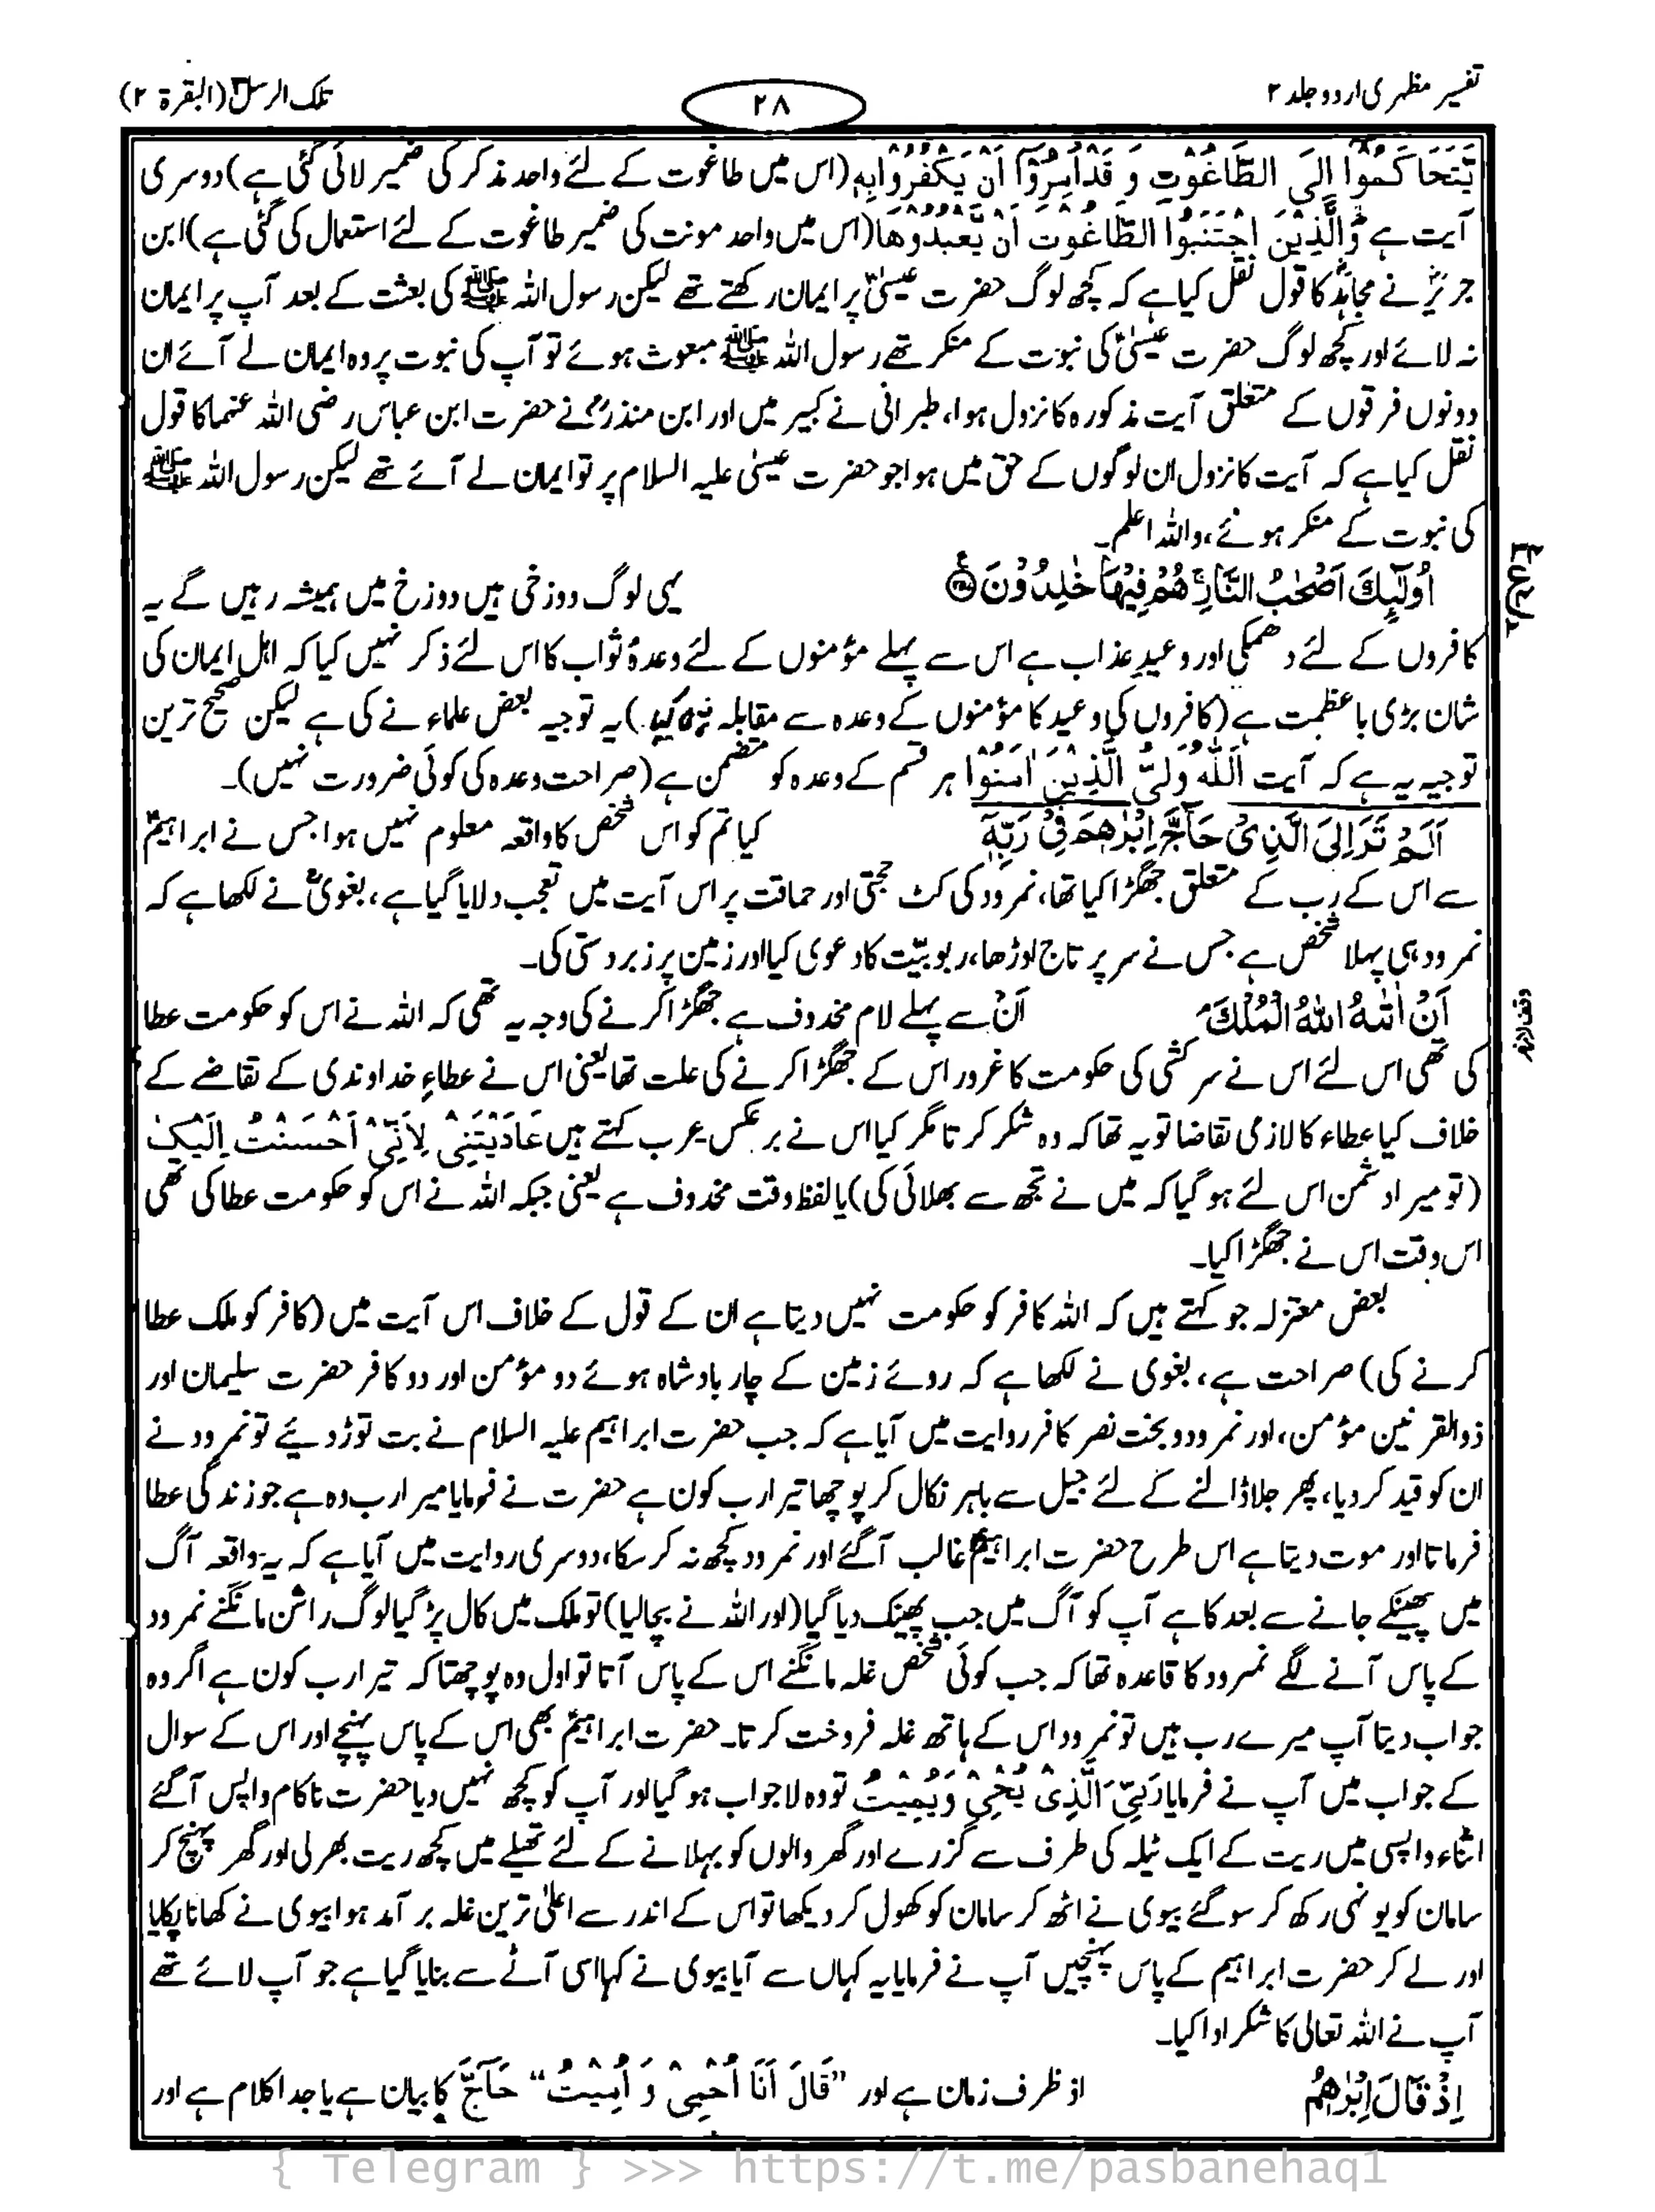 تفسیر مظہری اردو جلد ۲
۲۸
تلک الرسل (البقرۃ ۲)
یَّتَحَاکَمُوْا اِلَی الطَّاغُوْتِ وَ قَدْ اُمِرُوْا اَنْ یَکْفُرُوْا بِہٖ (اس میں طاغوت کے لئے واحد مذکر کی ضمیر لائی گئی ہے) دوسری
آیت ہے وَالَّذِیْنَ اجْتَنَبُوا الطَّاغُوْتَ اَنْ یَّعْبُدُوْھَا (اس میں واحد مونث کی ضمیر طاغوت کے لئے استعمال کی گئی ہے) ابن
جریرؒ نے مجاہدؒ کا قول نقل کیا ہے کہ کچھ لوگ حضرت عیسیٰؑ پر ایمان رکھتے تھے لیکن رسول اللہ ﷺ کی بعثت کے بعد آپ پر ایمان
نہ لائے اور کچھ لوگ حضرت عیسیٰؑ کی نبوت کے منکر تھے رسول اللہ ﷺ مبعوث ہوئے تو آپ کی نبوت پر وہ ایمان لے آئے ان
دونوں فرقوں کے متعلق آیت مذکورہ کا نزول ہوا، طبرانی نے کبیر میں اور ابن منذرؒ نے حضرت ابن عباس رضی اللہ عنہما کا قول
نقل کیا ہے کہ آیت کا نزول ان لوگوں کے حق میں ہوا جو حضرت عیسیٰ علیہ السلام پر تو ایمان لے آئے تھے لیکن رسول اللہ ﷺ
کی نبوت کے منکر ہوئے، واللہ اعلم۔
اُولٰٓئِکَ اَصْحٰبُ النَّارِ ۚ ھُمْ فِیْھَا خٰلِدُوْنَ یہی لوگ دوزخی ہیں دوزخ میں ہمیشہ رہیں گے یہ
کافروں کے لئے دھمکی اور وعیدِ عذاب ہے اس سے پہلے مؤمنوں کے لئے وعدۂ ثواب کا اس لئے ذکر نہیں کیا کہ اہل ایمان کی
شان بڑی باعظمت ہے (کافروں کی وعید کا مؤمنوں کے وعدہ سے مقابلہ نہیں کیا) یہ توجیہ بعض علماء نے کی ہے لیکن صحیح ترین
توجیہ یہ ہے کہ آیت اَللّٰہُ وَلِیُّ الَّذِیْنَ اٰمَنُوْا ہر قسم کے وعدہ کو متضمن ہے (صراحت وعدہ کی کوئی ضرورت نہیں)۔
اَلَمْ تَرَ اِلَی الَّذِیْ حَآجَّ اِبْرٰھٖمَ فِیْ رَبِّہٖٓ کیا تم کو اس شخص کا واقعہ معلوم نہیں ہوا جس نے ابراہیمؑ
سے اس کے رب کے متعلق جھگڑا کیا تھا، نمرود کی کٹ حجتی اور حماقت پر اس آیت میں تعجب دلایا گیا ہے، بغویؒ نے لکھا ہے کہ
نمرود ہی پہلا شخص ہے جس نے سر پر تاج اوڑھا، ربوبیّت کا دعوی کیا اور زمین پر زبردستی کی۔
اَنْ اٰتٰىہُ اللّٰہُ الْمُلْکَ ۘ اَنْ سے پہلے لام محذوف ہے جھگڑا کرنے کی وجہ یہ تھی کہ اللہ نے اس کو حکومت عطا
کی تھی اس لئے اس نے سرکشی کی حکومت کا غرور اس کے جھگڑا کرنے کی علت تھا یعنی اس نے عطاءِ خداوندی کے تقاضے کے
خلاف کیا عطاء کا لازمی تقاضا تو یہ تھا کہ وہ شکر کرتا مگر کیا اس نے برعکس۔ عرب کہتے ہیں عَادَیْتَنِیْ لِاَنِّیْ اَحْسَنْتُ اِلَیْکَ
(تو میرا دشمن اس لئے ہو گیا کہ میں نے تجھ سے بھلائی کی) یا لفظ وقت محذوف ہے یعنی جبکہ اللہ نے اس کو حکومت عطا کی تھی
اس وقت اس نے جھگڑا کیا۔
بعض معتزلہ جو کہتے ہیں کہ اللہ کافر کو حکومت نہیں دیتا ہے ان کے قول کے خلاف اس آیت میں (کافر کو ملک عطا
کرنے کی) صراحت ہے، بغوی نے لکھا ہے کہ روئے زمین کے چار بادشاہ ہوئے دو مؤمن اور دو کافر حضرت سلیمان اور
ذوالقرنین مؤمن، اور نمرود و بخت نصر کافر روایت میں آیا ہے کہ جب حضرت ابراہیم علیہ السلام نے بت توڑ دیئے تو نمرود نے
ان کو قید کر دیا، پھر جلا ڈالنے کے لئے جیل سے باہر نکال کر پوچھا تیرا رب کون ہے حضرت نے فرمایا میرا رب وہ ہے جو زندگی عطا
فرماتا اور موت دیتا ہے اس طرح حضرت ابراہیمؑ غالب آگئے اور نمرود کچھ نہ کر سکا، دوسری روایت میں آیا ہے کہ یہ واقعہ آگ
میں پھینکے جانے سے بعد کا ہے آپ کو آگ میں جب پھینک دیا گیا (اور اللہ نے بچا لیا) تو ملک میں کال پڑ گیا لوگ راشن مانگنے نمرود
کے پاس آنے لگے نمرود کا قاعدہ تھا کہ جب کوئی شخص غلہ مانگنے اس کے پاس آتا تو اول وہ پوچھتا کہ تیرا رب کون ہے اگر وہ
جواب دیتا آپ میرے رب ہیں تو نمرود اس کے ہاتھ غلہ فروخت کرتا۔ حضرت ابراہیمؑ بھی اس کے پاس پہنچے اور اس کے سوال
کے جواب میں آپ نے فرمایا رَبِّیَ الَّذِیْ یُحْیِیْ وَیُمِیْتُ تو وہ لاجواب ہو گیا اور آپ کو کچھ نہیں دیا حضرت ناکام واپس آگئے
اثناء واپسی میں ریت کے ایک ٹیلہ کی طرف سے گزرے اور گھر والوں کو بہلانے کے لئے تھیلے میں کچھ ریت بھر لی اور گھر پہنچ کر
سامان کو یونہی رکھ کر سو گئے بیوی نے اٹھ کر سامان کو کھول کر دیکھا تو اس کے اندر سے اعلیٰ ترین غلہ برآمد ہوا بیوی نے کھانا پکایا
اور لے کر حضرت ابراہیم کے پاس پہنچیں آپ نے فرمایا یہ کہاں سے آیا بیوی نے کہا اسی آٹے سے بنایا گیا ہے جو آپ لائے تھے
آپ نے اللہ تعالیٰ کا شکر ادا کیا۔
اِذْ قَالَ اِبْرٰھٖمُ اذ ظرف زمان ہے اور ”قَالَ اَنَا اُحْیِیْ وَ اُمِیْتُ“ حَآجَّ کا بیان ہے یا جدا کلام ہے اور
{ Telegram } >>> https://t.me/pasbanehaq1